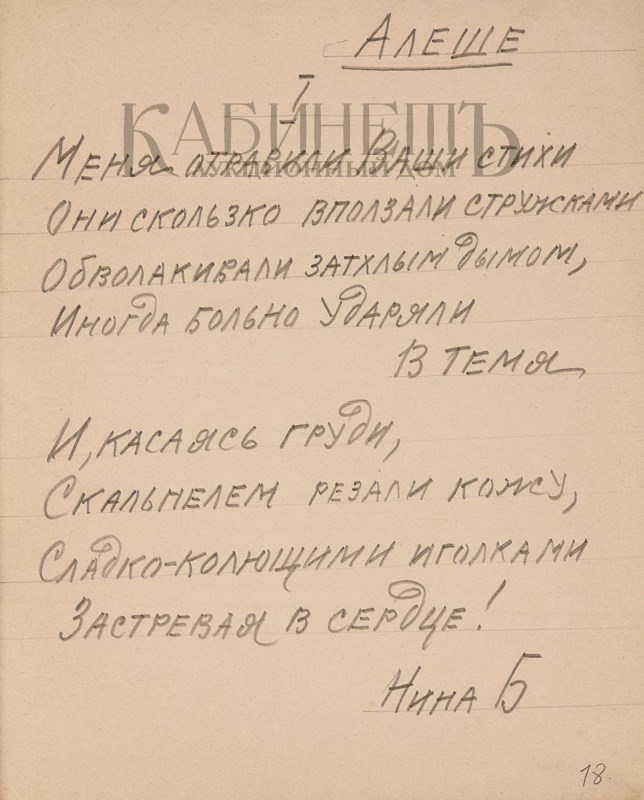 Алеше
I
КАБИНЕТЪ
АУКЦИОННЫЙ ДОМ
Меня отравили Ваши стихи
Они скользко вползали стружками
Обволакивали затхлым дымом,
Иногда больно ударяли
В темя
И, касаясь груди,
Скальпелем резали кожу,
Сладко-колющими иголками
Застревая в сердце!
Нина Б
18.